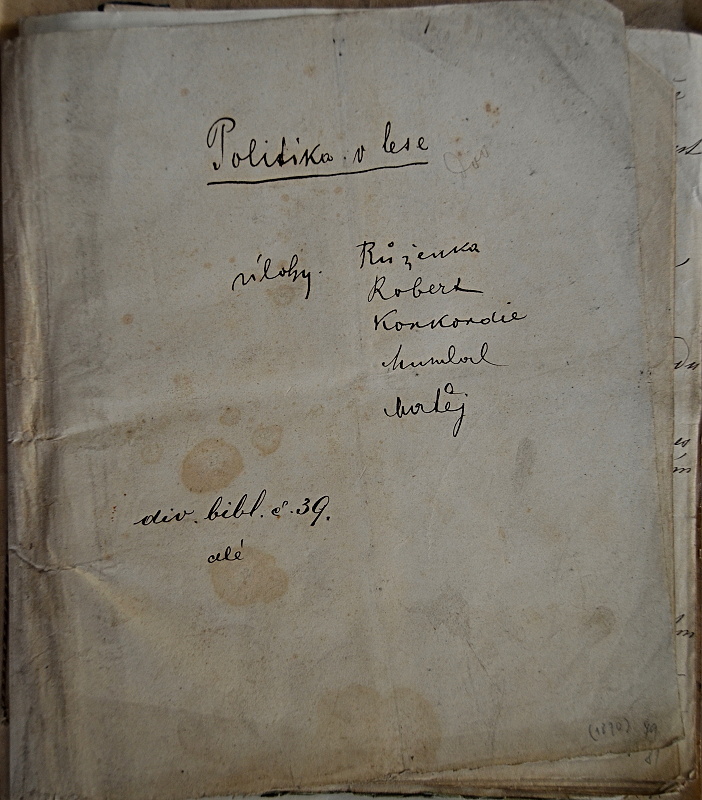 Politika v lese
úlohy. Růženka
Robert
Konkordie
Mumlal
Matěj
div. bibl. č. 39.
(1870)